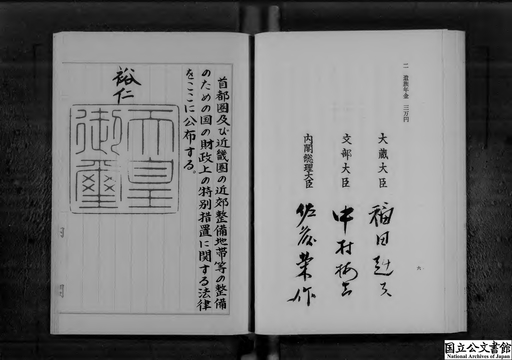 一 遺族年金 三万円
大蔵大臣 福田赳夫
文部大臣 中村梅吉
内閣総理大臣 佐藤榮作
六
首都圏及び近畿圏の近郊整備地帯等の整備
のための国の財政上の特別措置に関する法律
をここに公布する。
裕仁
天皇
御璽
国立公文書館
National Archives of Japan